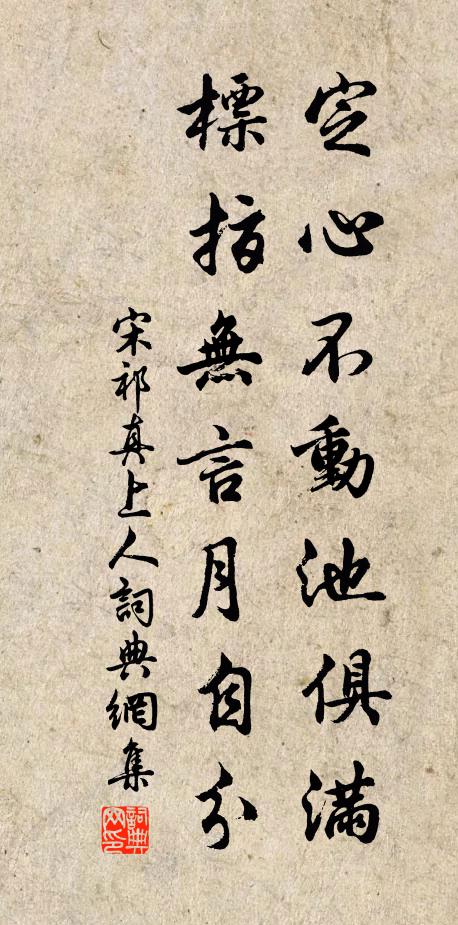 定心不動池俱滿
標指無言月自分
宋祁真上人詞典網集
詞典網印